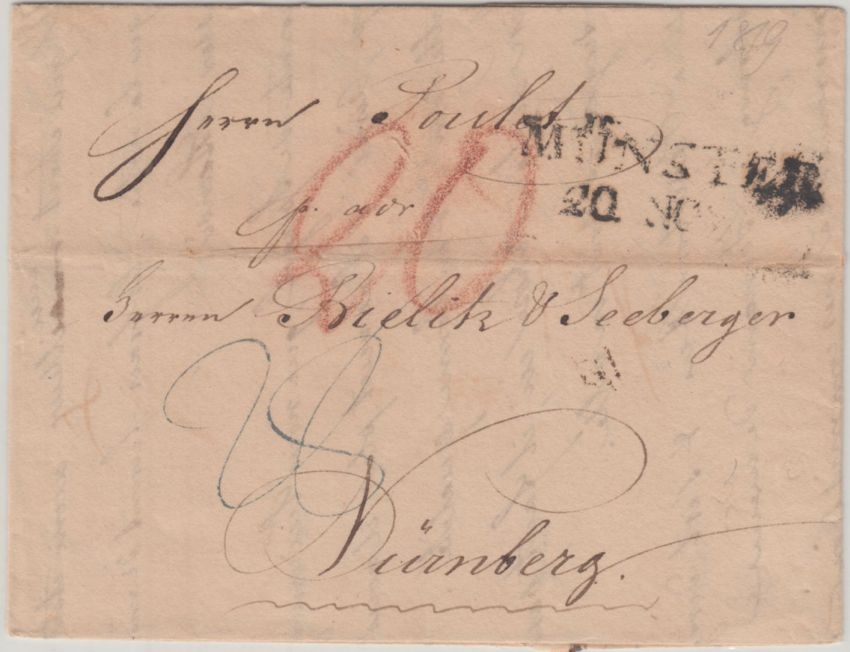 1819
Herrn Poulet
MÜNSTER
20 NOV
p. adr
20
Herren Bielitz & Seeberger
Nürnberg.